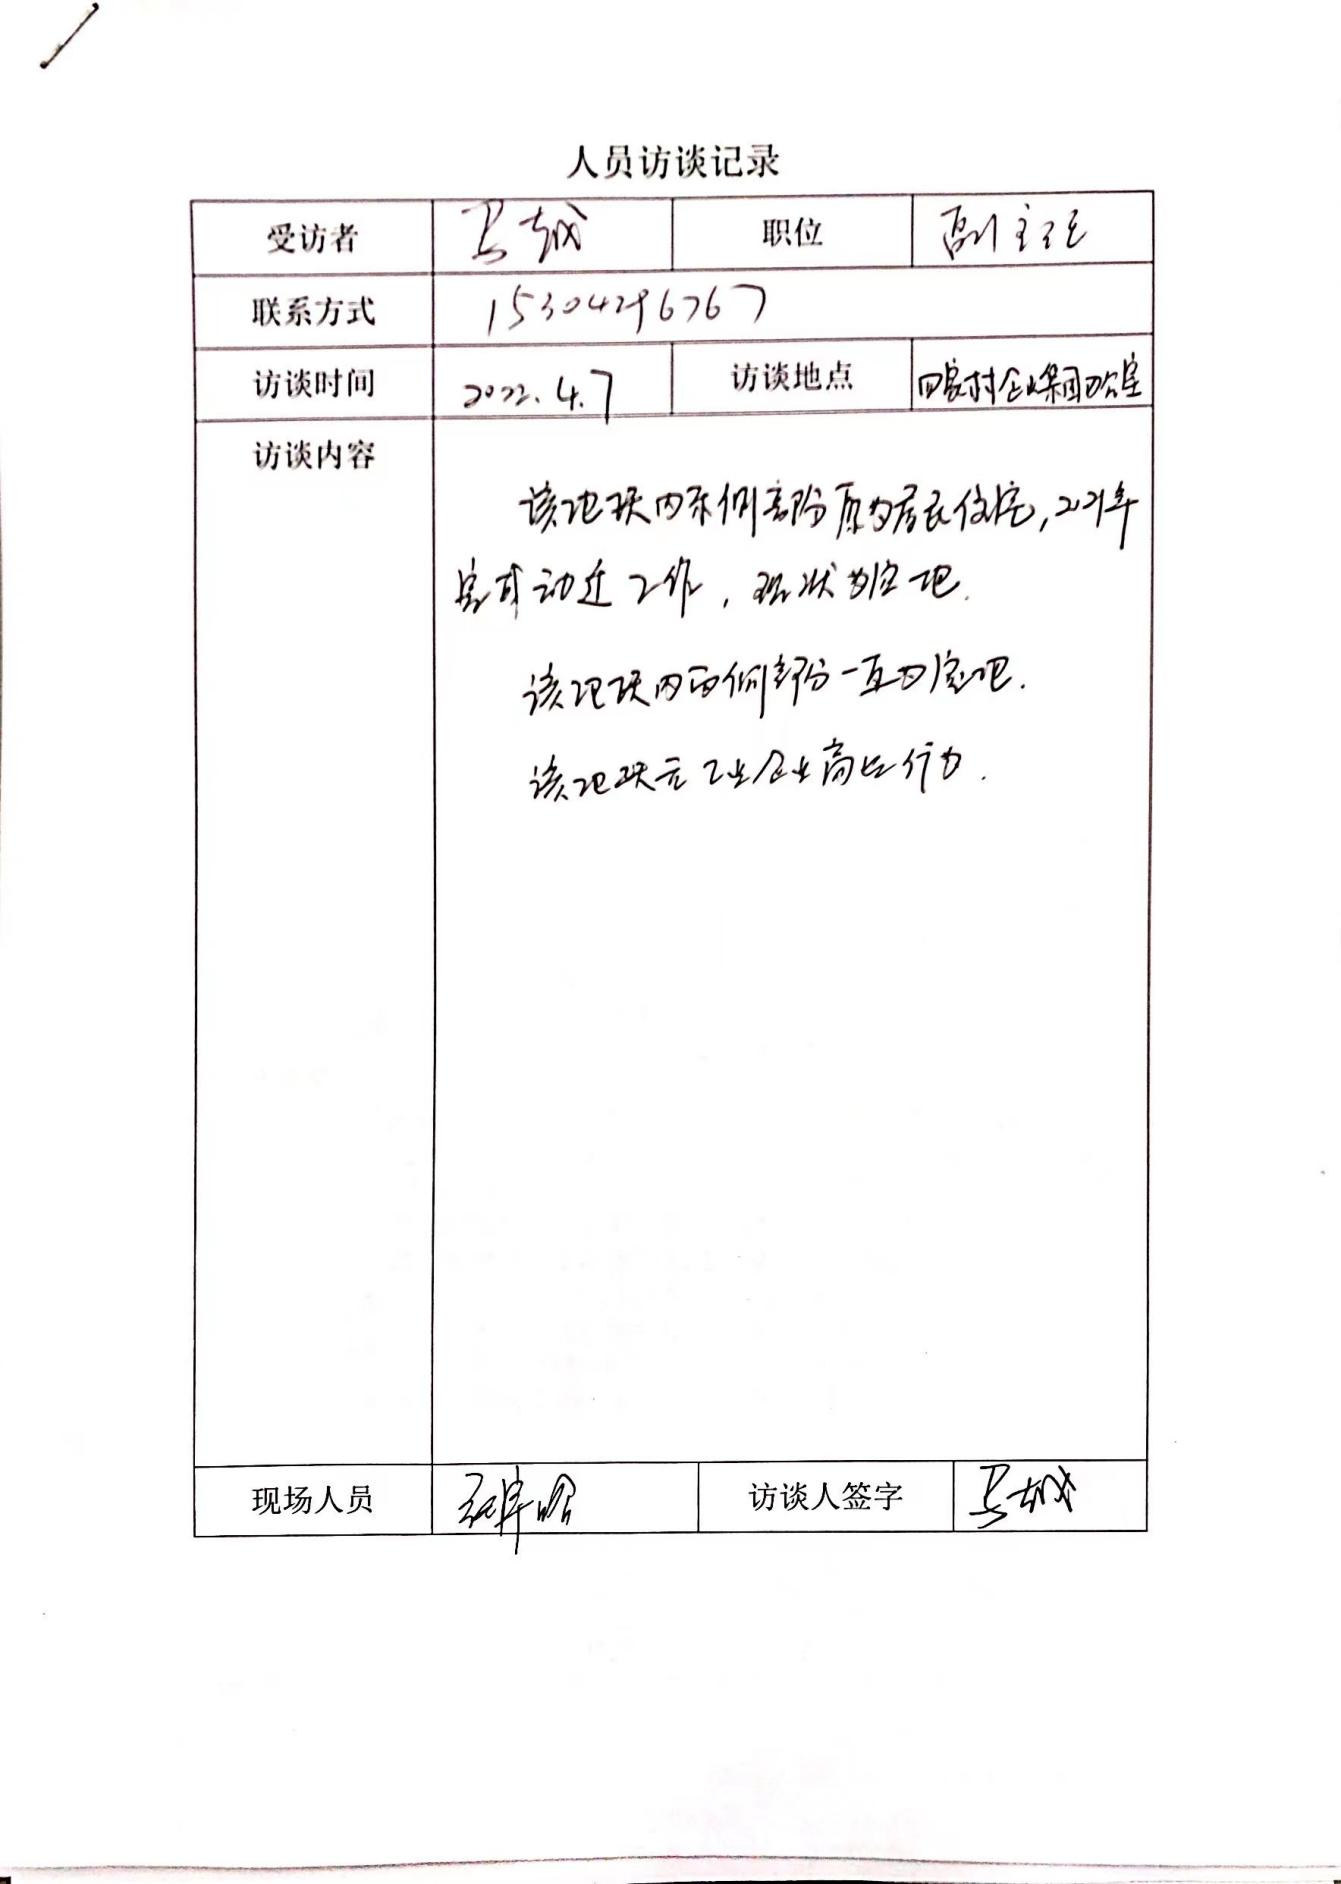 人员访谈记录
受访者 马城 职位 副主任
联系方式 15304296767
访谈时间 2022.4.7 访谈地点 四家村企业集团办公室
访谈内容
该地块内东侧部分原为居民住宅，2021年
完成动迁工作，现状为空地.
该地块内西侧部分一直为空地.
该地块无工业企业 行为.
现场人员 访谈人签字 马城